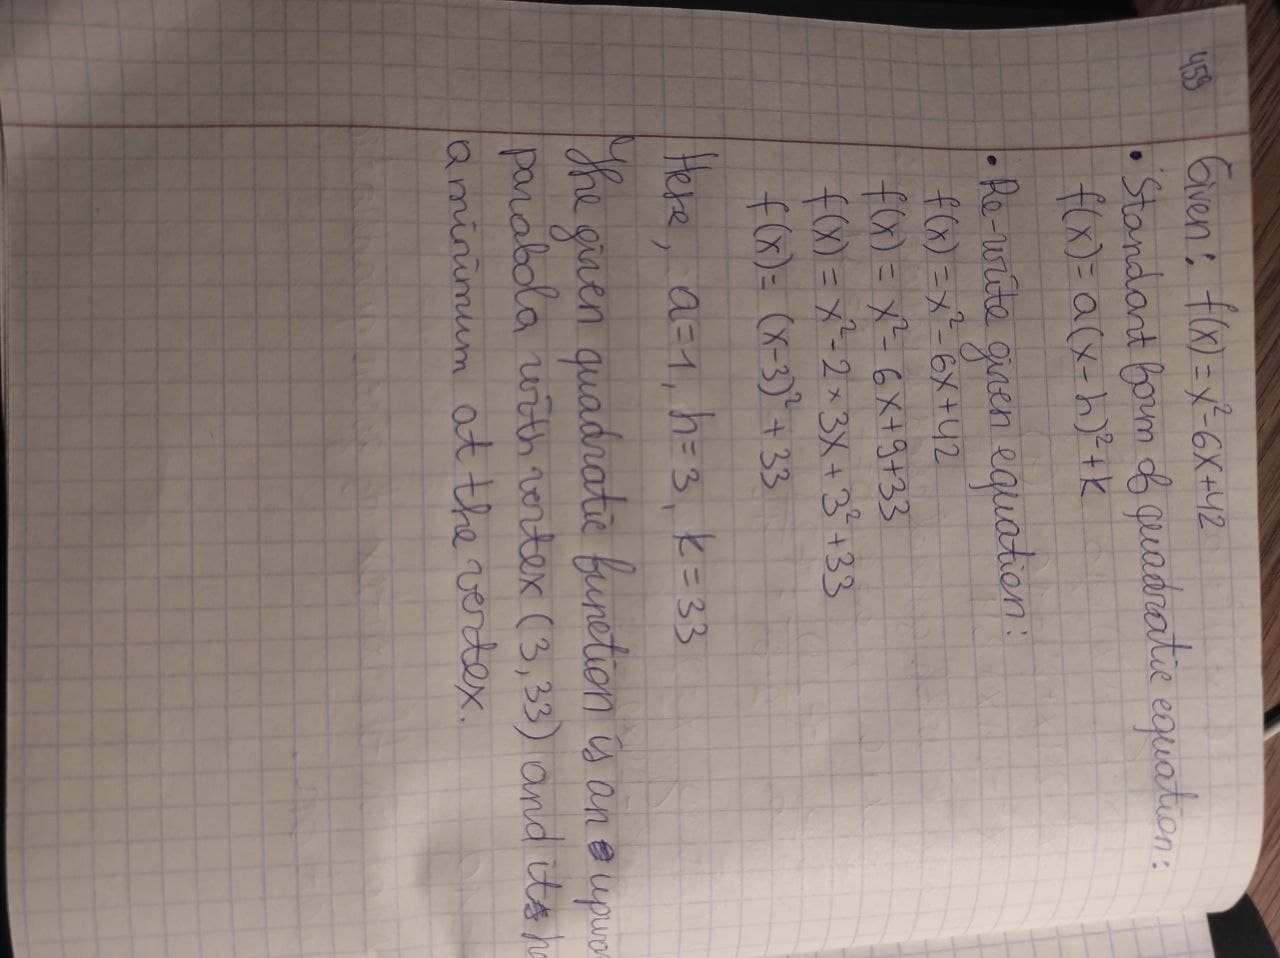 459
Given: f(x) = x² - 6x + 42
• Standart form of quadratic equation:
f(x) = a(x - h)² + k
• Re-write given equation:
f(x) = x² - 6x + 42
f(x) = x² - 6x + 9 + 33
f(x) = x² - 2 × 3x + 3² + 33
f(x) = (x-3)² + 33
Here, a = 1, h = 3, k = 33
The given quadratic function is an
parabola with vertex (3, 33) and it
a minimum at the vertex.